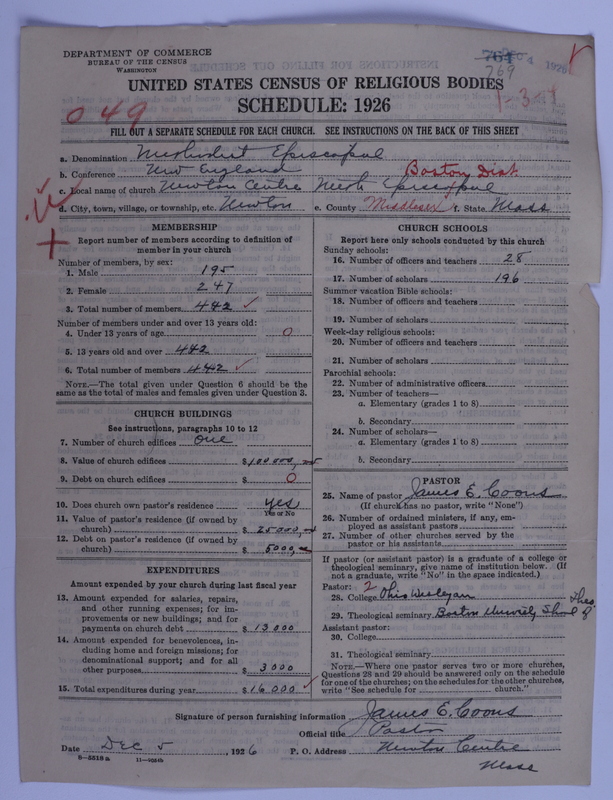 DEPARTMENT OF COMMERCE
BUREAU OF THE CENSUS
WASHINGTON
764 4 1926
769
UNITED STATES CENSUS OF RELIGIOUS BODIES
SCHEDULE: 1926
049
1-3-1
FILL OUT A SEPARATE SCHEDULE FOR EACH CHURCH. SEE INSTRUCTIONS ON THE BACK OF THIS SHEET
a. Denomination Methodist Episcopal
b. Conference New England Boston Dist.
c. Local name of church Newton Centre Meth Episcopal
d. City, town, village, or township, etc. Newton e. County Middlesex f. State Mass
MEMBERSHIP
Report number of members according to definition of
member in your church
Number of members, by sex:
1. Male 195
2. Female 247
3. Total number of members 442
Number of members under and over 13 years old:
4. Under 13 years of age 0
5. 13 years old and over 442
6. Total number of members 442
NOTE.—The total given under Question 6 should be the
same as the total of males and females given under Question 3.
CHURCH BUILDINGS
See instructions, paragraphs 10 to 12
7. Number of church edifices one
8. Value of church edifices $100000,
9. Debt on church edifices $ 0
10. Does church own pastor's residence? yes
Yes or No
11. Value of pastor's residence (if owned by
church) $25000,
12. Debt on pastor's residence (if owned by
church) $5000,
EXPENDITURES
Amount expended by your church during last fiscal year
13. Amount expended for salaries, repairs,
and other running expenses; for im-
provements or new buildings; and for
payments on church debt $13000
14. Amount expended for benevolences, in-
cluding home and foreign missions; for
denominational support; and for all
other purposes $3000
15. Total expenditures during year $16000
CHURCH SCHOOLS
Report here only schools conducted by this church
Sunday schools:
16. Number of officers and teachers 28
17. Number of scholars 196
Summer vacation Bible schools:
18. Number of officers and teachers
19. Number of scholars
Week-day religious schools:
20. Number of officers and teachers
21. Number of scholars
Parochial schools:
22. Number of administrative officers
23. Number of teachers—
a. Elementary (grades 1 to 8)
b. Secondary
24. Number of scholars—
a. Elementary (grades 1 to 8)
b. Secondary
PASTOR
25. Name of pastor James E. Coons
(If church has no pastor, write "None")
26. Number of ordained ministers, if any, em-
ployed as assistant pastors
27. Number of other churches served by the
pastor or his assistants
If pastor (or assistant pastor) is a graduate of a college or
theological seminary, give name of institution below. (If
not a graduate, write "No" in the space indicated.)
Pastor: 2
28. College Ohio Wesleyan
29. Theological seminary Boston
Assistant pastor:
30. College
31. Theological seminary
NOTE.—Where one pastor serves two or more churches,
Questions 28 and 29 should be answered only on the schedule
for one of the churches; on the schedules for the other churches,
write "See schedule for church."
Signature of person furnishing information James E. Coons
Official title Pastor
Date Dec 5, 1926 P. O. Address Newton Centre
Mass
8-5518a